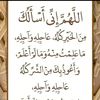 اللَّهُمَّ إِنِّي أَسْأَلُكَ
مِنَ الْخَيْرِ كُلِّهِ عَاجِلِهِ وَآجِلِهِ،
مَا عَلِمْتُ مِنْهُ وَمَا لَمْ أَعْلَمْ،
وَأَعُوذُ بِكَ مِنَ الشَّرِّ كُلِّهِ
عَاجِلِهِ وَآجِلِهِ،